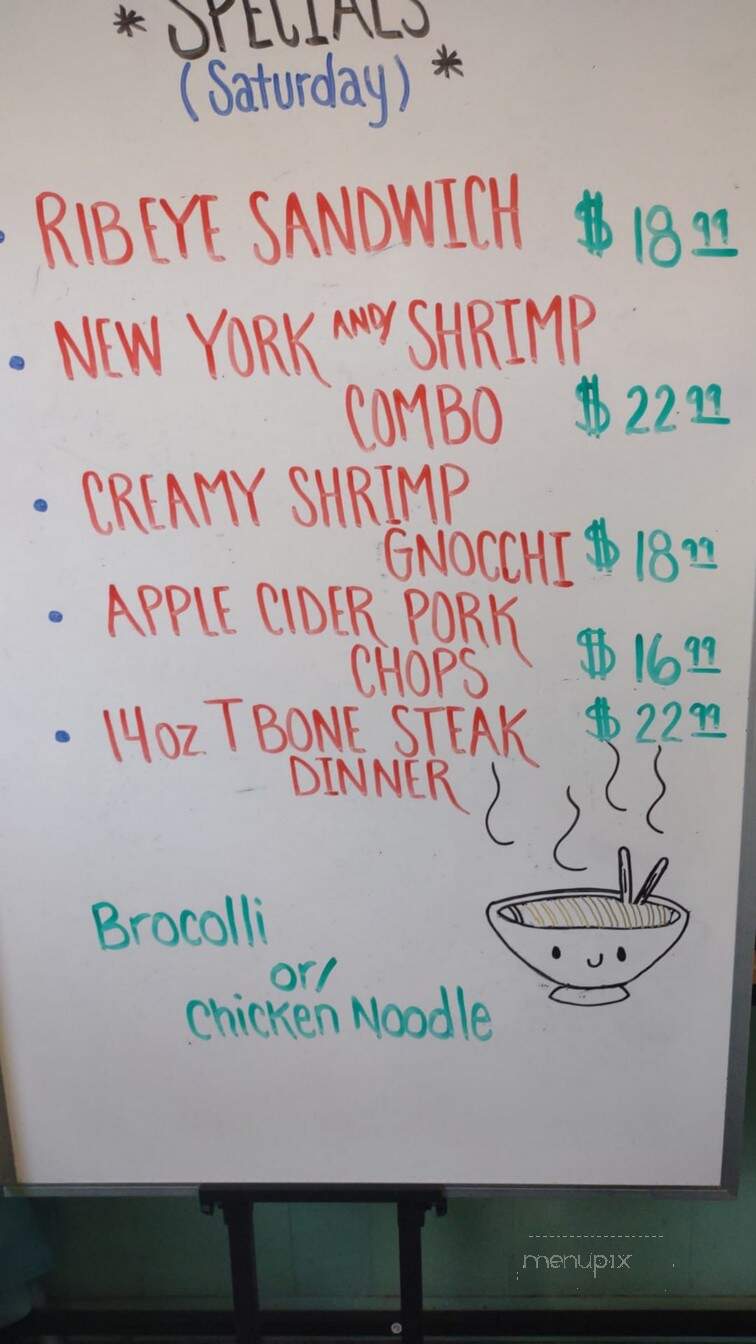 * SPECIALS *
(Saturday)
• RIBEYE SANDWICH $18.99
• NEW YORK AND/ SHRIMP
COMBO $22.99
• CREAMY SHRIMP
GNOCCHI $18.99
• APPLE CIDER PORK
CHOPS $16.99
• 14oz T BONE STEAK $22.99
DINNER
Brocolli
or/
Chicken Noodle
menupix